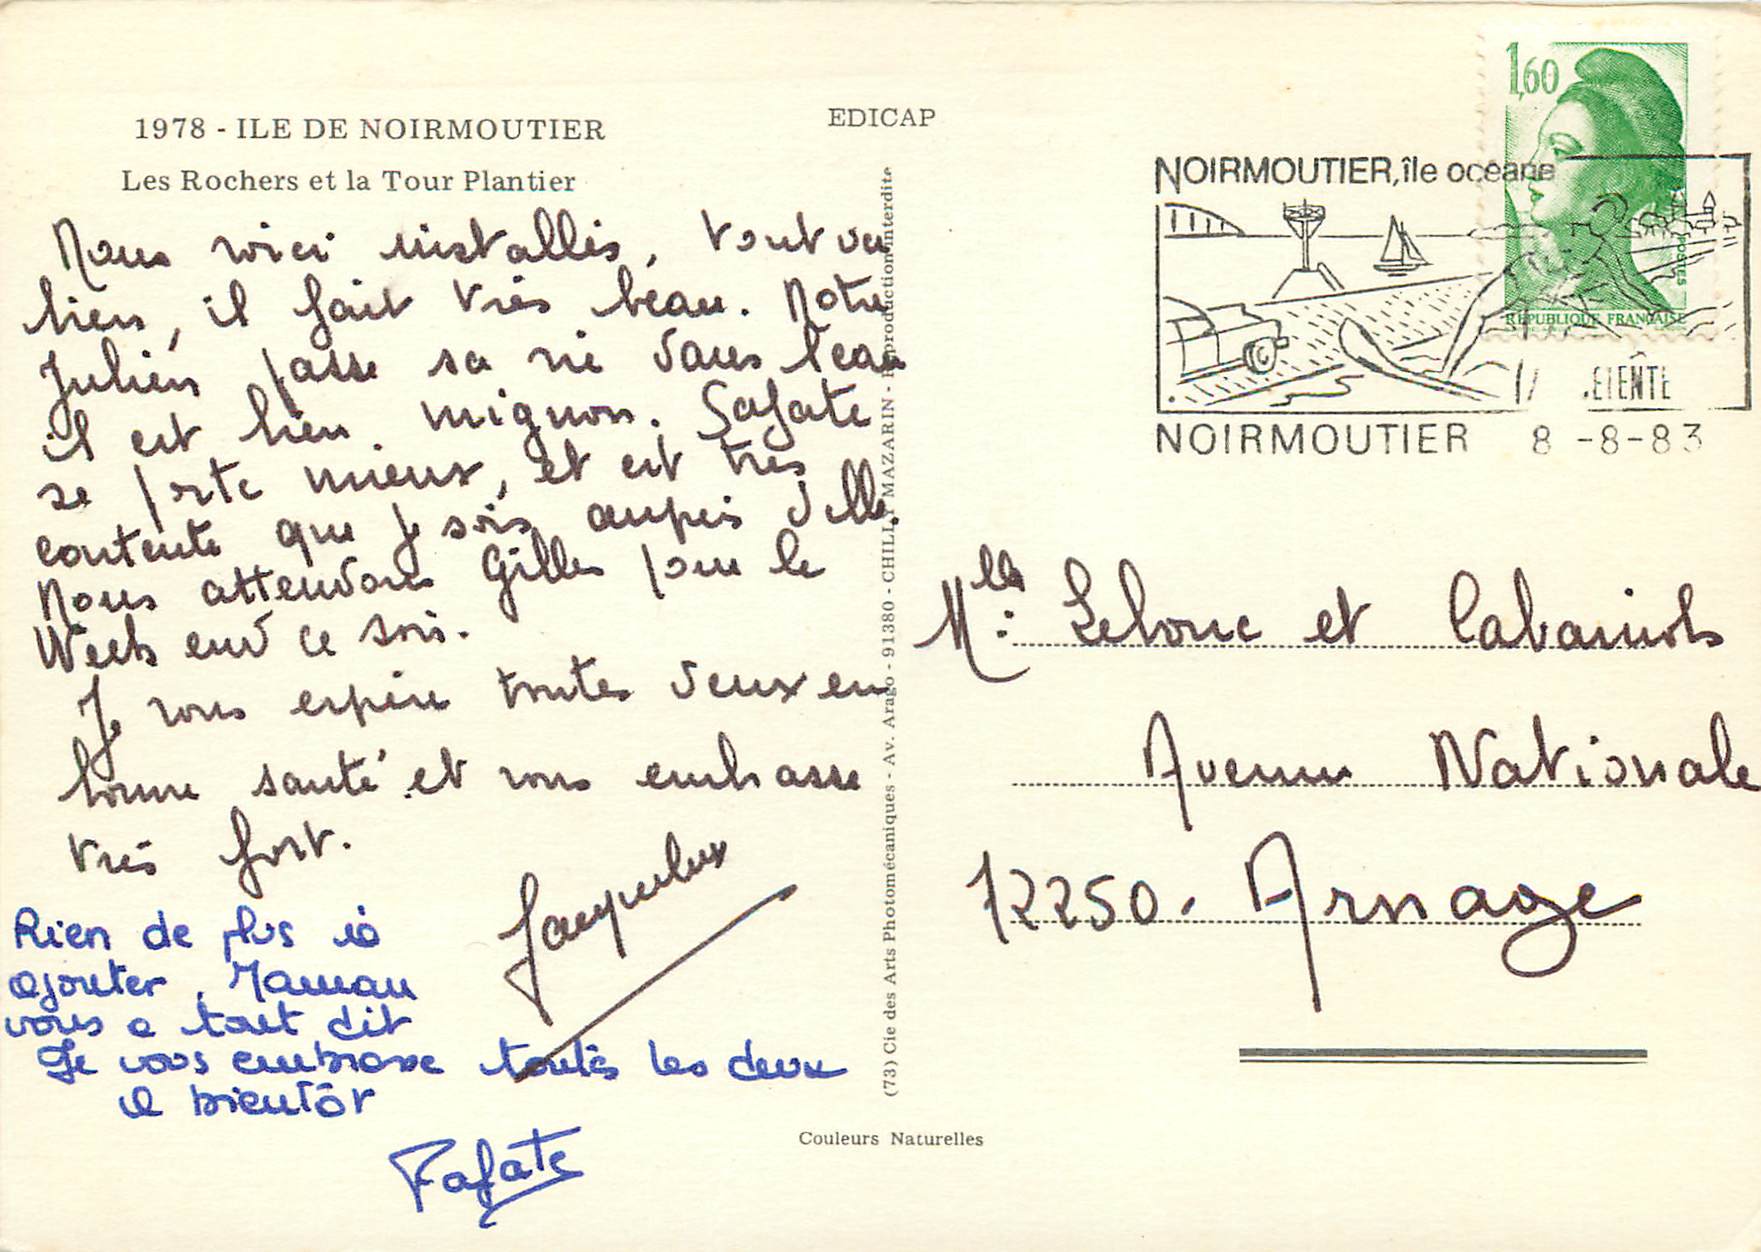 1978 - ILE DE NOIRMOUTIER
Les Rochers et la Tour Plantier
Nous voici installés, tout va
bien, il fait très beau. Notre
Julien passe sa vie dans l'eau
il est bien mignon. Fafate
se porte mieux, et est très
contente que je sois auprès d'elle.
Nous attendons Gilles pour le
Week end ce soir.
Je vous espère toutes deux en
bonne santé et vous embrasse
très fort.
Rien de plus à
ajouter, Maman
vous a tout dit
Je vous embrasse toutes les deux
a bientôt
Fafate
EDICAP
(73) Cie des Arts Photomécaniques - Av. Arago - 91380 - CHILLY MAZARIN - Reproduction interdite
Couleurs Naturelles
1,60
POSTES
REPUBLIQUE FRANÇAISE
NOIRMOUTIER, île océane
NOIRMOUTIER 8 -8-83
Mlle: Lebouc et
Avenue Nationale
72250. Arnage